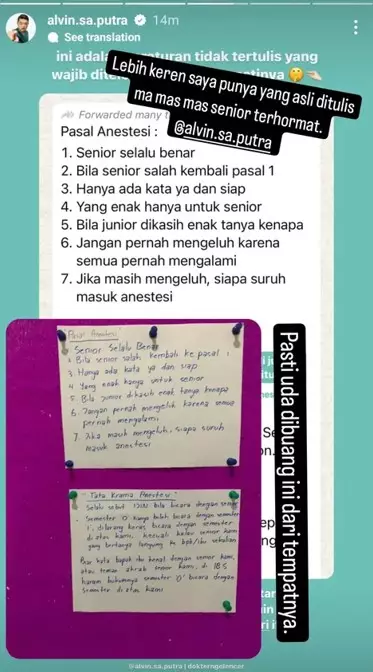 alvin.sa.putra 14m
See translation
ini adalah peraturan tidak tertulis yang
wajib
Lebih keren saya punya yang asli ditulis
ma mas mas senior terhormat.
@alvin.sa.putra
Forwarded many
Pasal Anestesi :
1. Senior selalu benar
2. Bila senior salah kembali pasal 1
3. Hanya ada kata ya dan siap
4. Yang enak hanya untuk senior
5. Bila junior dikasih enak tanya kenapa
6. Jangan pernah mengeluh karena
semua pernah mengalami
7. Jika masih mengeluh, siapa suruh
masuk anestesi
"Pasal Anestesi"
Senior Selalu Benar
2 Bila senior salah kembali ke pasal 1
3 Hanya ada kata ya dan siap
4 Yang enak hanya untuk senior
5 Bila junior dikasih enak tanya kenapa
6 Jangan pernah mengeluh karena semua
pernah mengalami
7. Jika masih mengeluh, siapa suruh
masuk anestesi
"Tata Krama Anestesi"
Selalu sebut bila bicara dengan senior
Semester '0' hanya boleh bicara dengan semester
1, dilarang keras bicara dengan semester
di atas kami, kecuali senior kami
yang bertanya langsung ke bpk/ibu sekalian
Bila kata bapak ibu kenal dengan senior kami,
atau teman akrab senior kami, di IBS
haram hukumnya semester '0' bicara dengan
semester di atas kami
Pasti uda dibuang ini dari tempatnya.
@alvin.sa.putra | doktergelencer